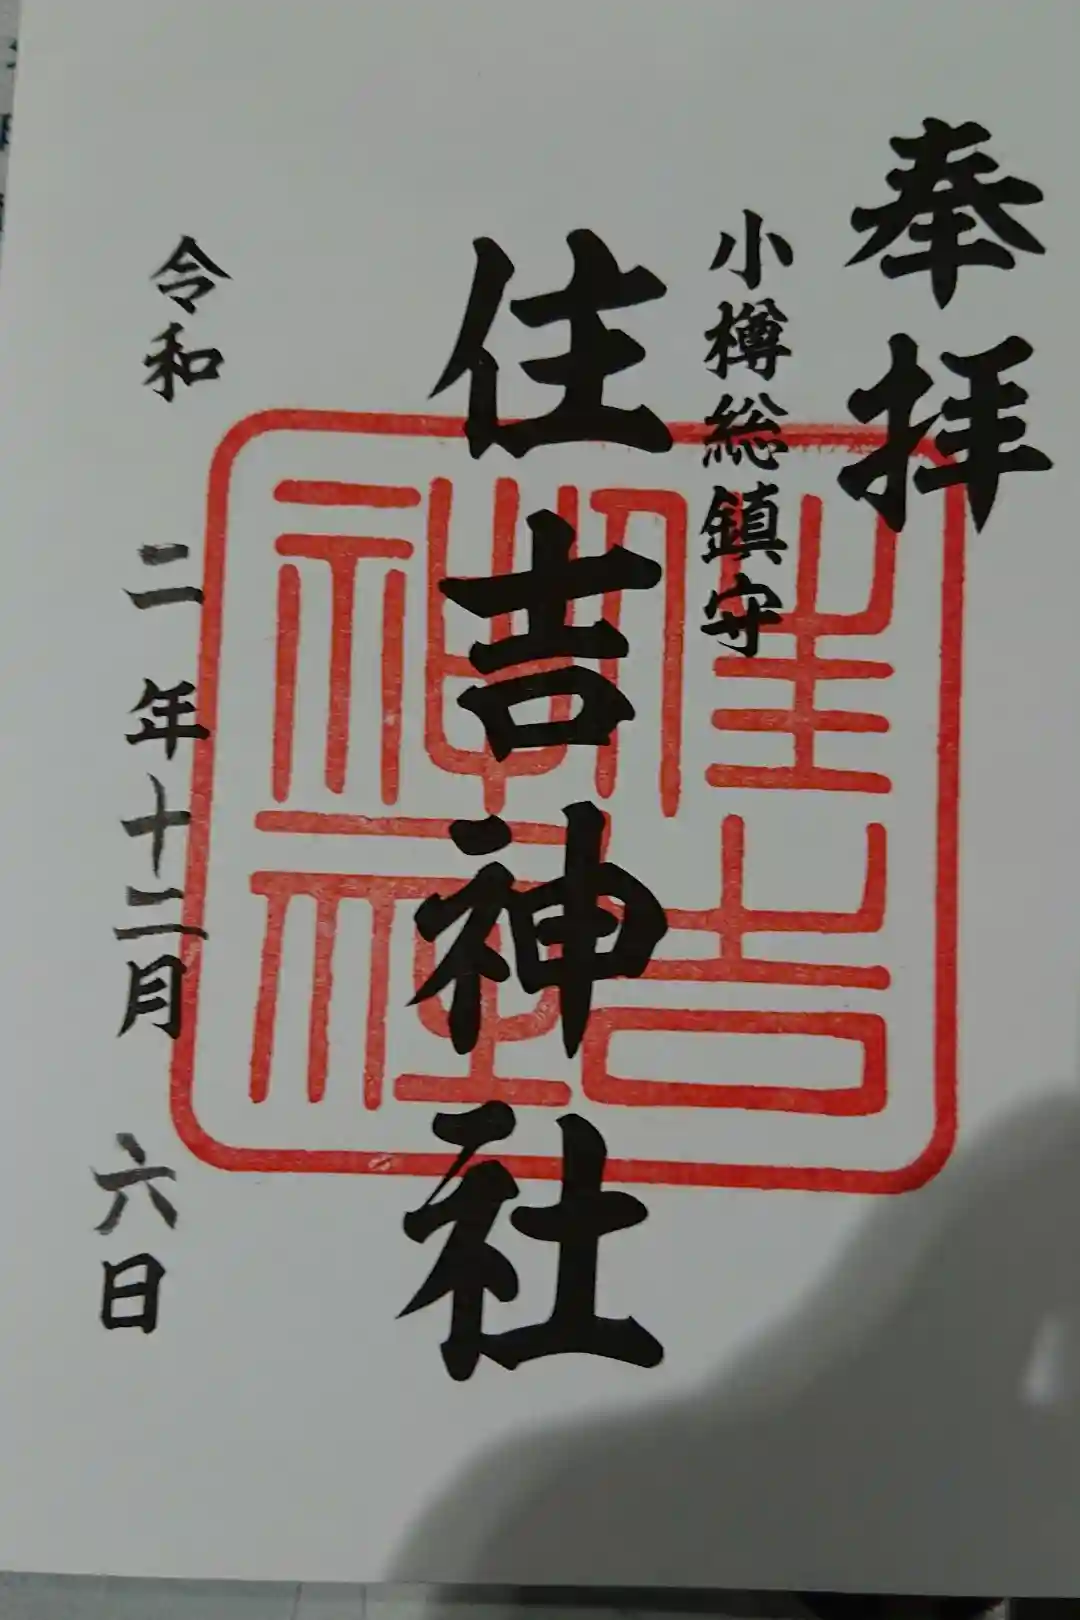 奉拝
小樽総鎮守
住吉神社
令和二年十二月六日
住吉
神社